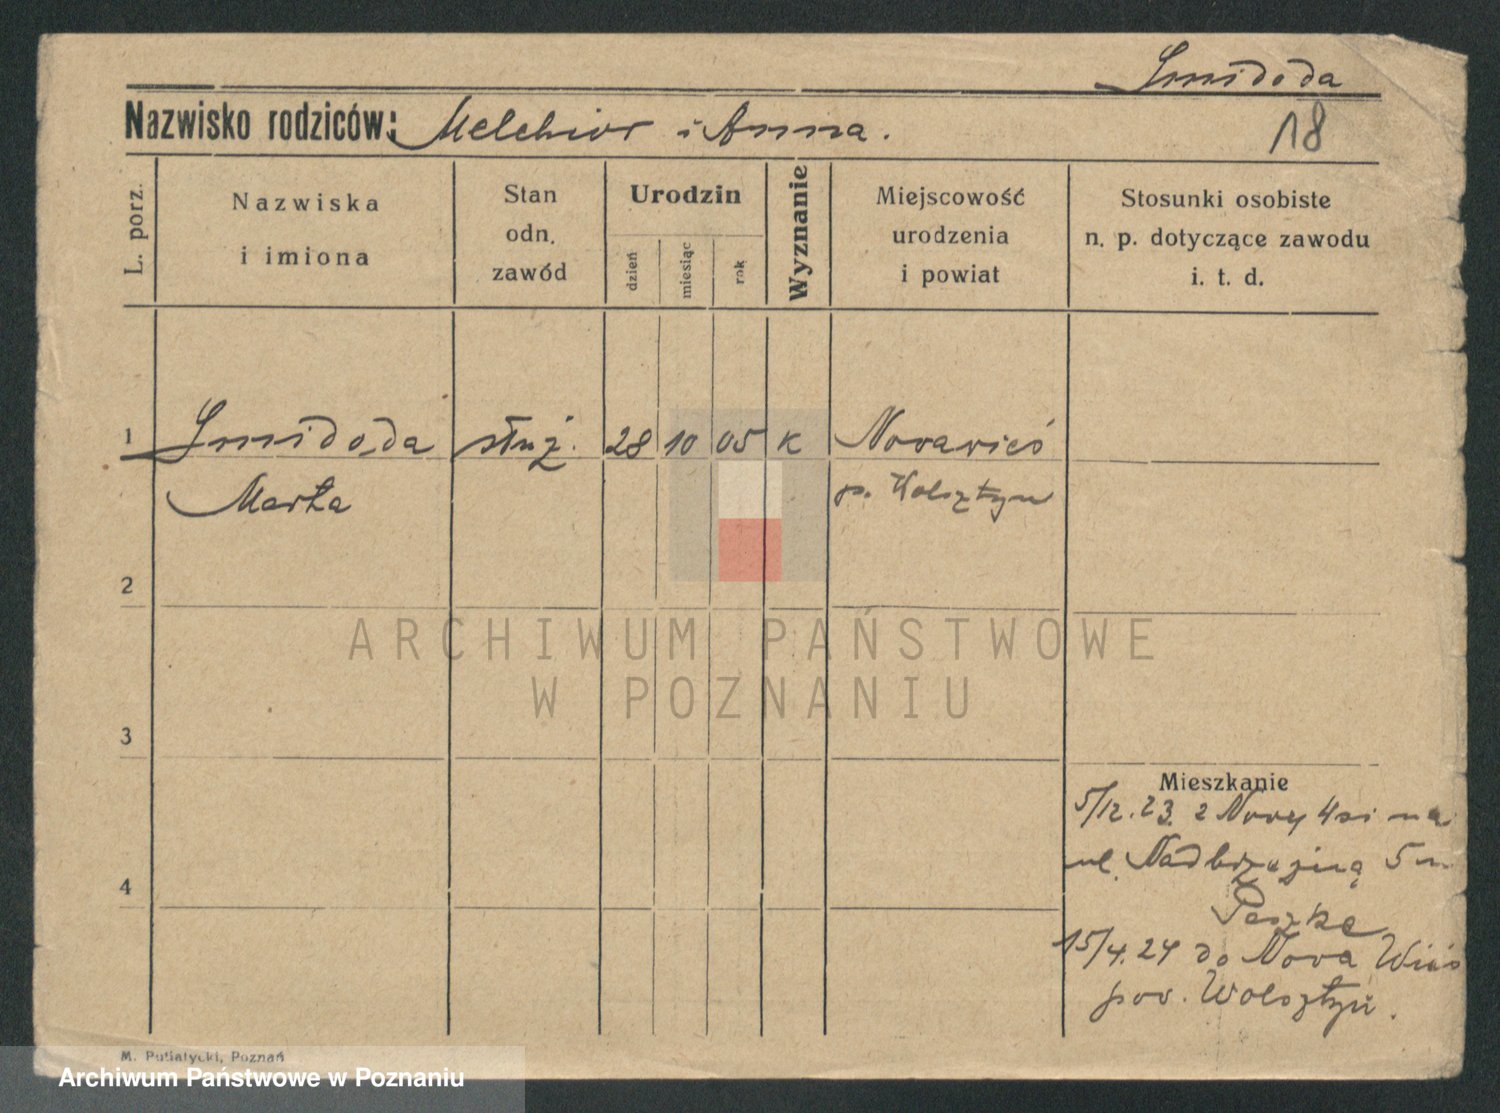 Smidoda
Nazwisko rodziców: Melchior i Anna.
18
L. porz.
Nazwiska
i imiona
Stan
odn.
zawód
Urodzin
dzień
miesiąc
rok
Wyznanie
Miejscowość
urodzenia
i powiat
Stosunki osobiste
n. p. dotyczące zawodu
i. t. d.
1 Smidoda służ. 28 10 05 K Nowawieś
Marta p. Wolsztyn
2
ARCHIWUM PAŃSTWOWE
W POZNANIU
3
Mieszkanie
5/12.23. z Nowej wsi na
ul. 5 m
4
15/4.24 do Nowa Wieś
pow. Wolsztyn.
M. Putiatycki, Poznań
Archiwum Państwowe w Poznaniu